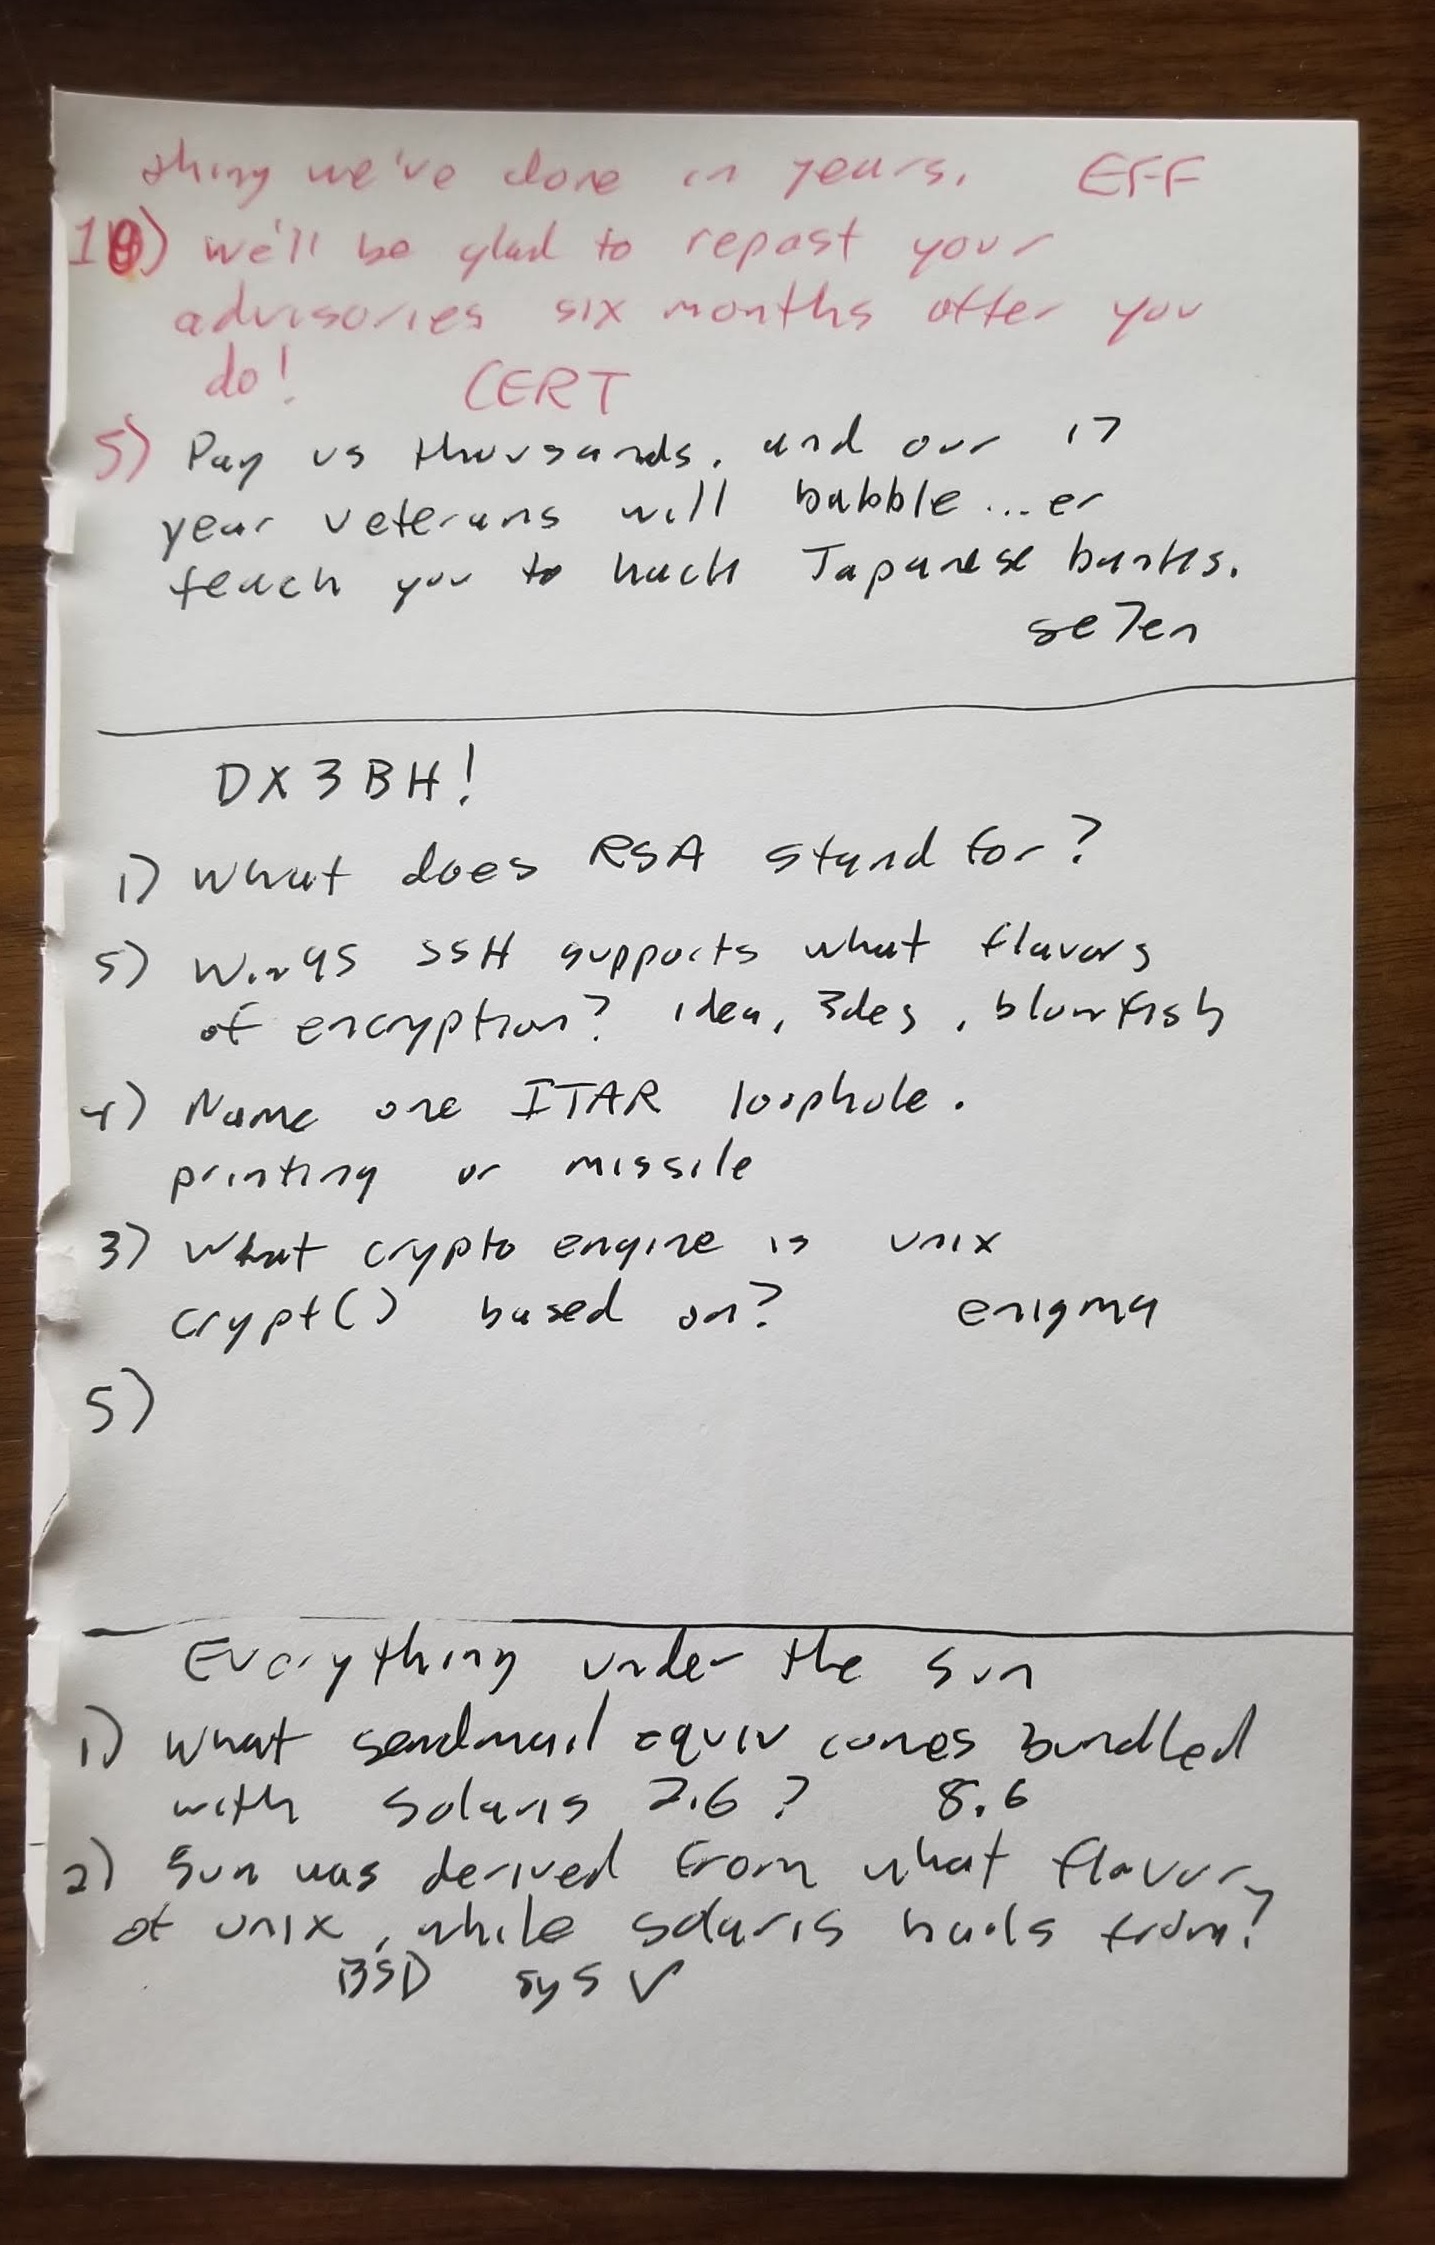 thing we've done in years. EFF
10) we'll be glad to repost your
advisories six months after you
do! CERT
5) Pay us thousands, and our 17
year veterans will babble...er
teach you to hack Japanese banks.
se7en
DX3BH!
1) What does RSA stand for?
5) Win95 SSH supports what flavors
of encryption? idea, 3des, blowfish
4) Name one ITAR loophole.
printing or missile
3) What crypto engine is unix
crypt() based on? enigma
5)
Everything under the sun
1) What sendmail equiv comes bundled
with Solaris 2.6? 8.6
2) Sun was derived from what flavor
of unix, while solaris hails from?
BSD sys V